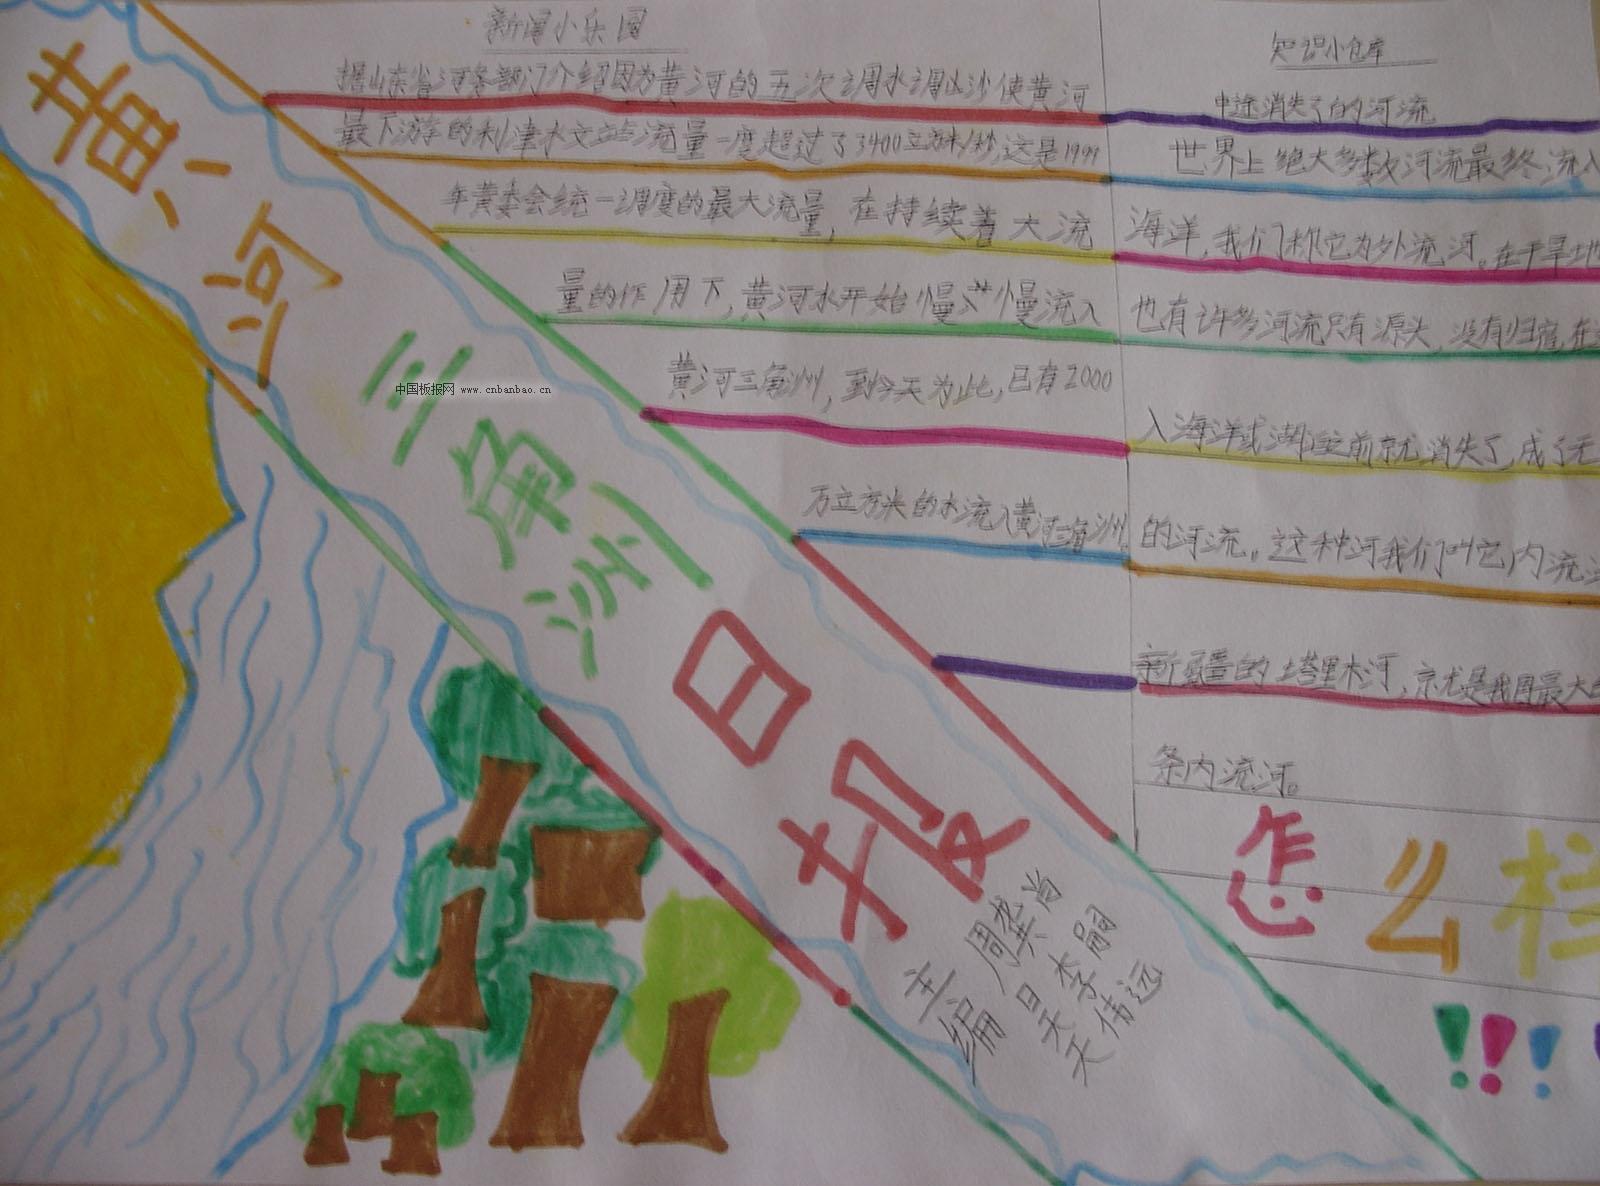 黄河三角洲
日报
中国板报网 www.cnbanbao.cn
新闻小乐园
据山东省河务部门介绍因为黄河的五次调水调沙使黄河
最下游的利津水文站流量一度超过了3400立方米/秒,这是1999
年黄委会统一调度的最大流量,在持续着大流
量的作用下,黄河水开始慢慢流入
黄河三角洲,到今天为止,已有2000
万立方米的水流入黄河三角洲
知识小仓库
中途消失了的河流
世界上绝大多数河流最终流入
海洋,我们称它为外流河。在干旱地
也有许多河流只有源头,没有归宿,在
入海洋或湖泊前就消失了,成了无
的河流。这种河我们叫它内流河
新疆的塔里木河,就是我国最大的
条内流河。
怎么样
!!!
主编